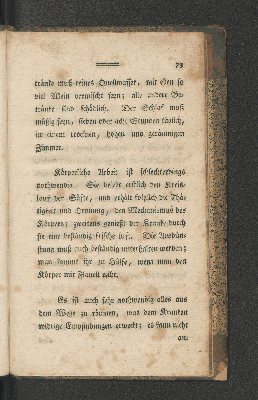 79
tränke muß reines Quellwasser, mit eben so
viel Wein vermischt seyn; alle andere Ge-
tränke sind schädlich. Der Schlaf muß
mäßig seyn, sieben oder acht Stunden täglich,
in einem trocknen, hohen und geräumigen
Zimmer.
Körperliche Arbeit ist schlechterdings
nothwendig. Sie belebt erstlich den Kreis-
lauf der Säfte, und erhält folglich die Thä-
tigkeit und Ordnung, den Mechanismus des
Körpers; zweitens genießt der Kranke durch
sie eine beständig frische Luft. Die Ausdün-
stung muß auch beständig unterhalten werden;
man kommt ihr zu Hülfe, wenn man den
Körper mit Flanell reibt.
Es ist auch sehr nothwendig alles aus
dem Wege zu räumen, was dem Kranken
widrige Empfindungen erweckt; es kann nicht